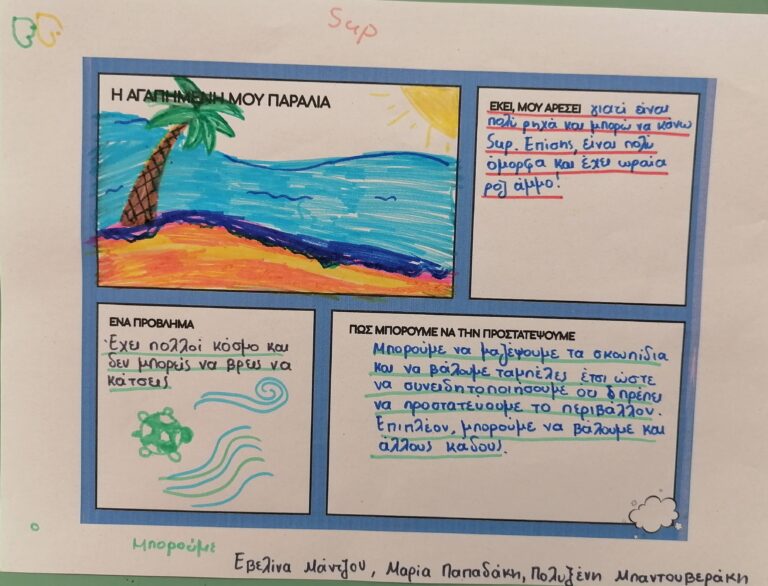 Sup
Η ΑΓΑΠΗΜΕΝΗ ΜΟΥ ΠΑΡΑΛΙΑ
ΕΚΕΙ, ΜΟΥ ΑΡΕΣΕΙ γιατί είναι
πολύ ρηχά και μπορώ να κάνω
Sup. Επίσης, είναι πολύ
όμορφα και έχει ωραία
ροζ άμμο!
ΕΝΑ ΠΡΟΒΛΗΜΑ
Έχει πολλοί κόσμο και
δεν μπορείς να βρεις να
κάτσεις
ΠΩΣ ΜΠΟΡΟΥΜΕ ΝΑ ΤΗΝ ΠΡΟΣΤΑΤΕΨΟΥΜΕ
Μπορούμε να μαζέψουμε τα σκουπίδια
και να βάλουμε ταμπέλες έτσι ώστε
να συνειδητοποιήσουμε ότι πρέπει
να προστατεύουμε το περιβάλλον.
Επιπλέον, μπορούμε να βάλουμε και
άλλους κάδους.
Μπορούμε
Εβελίνα Μάντζου, Μαρία Παπαδάκη, Πολυξένη Μπαντουβεράκη